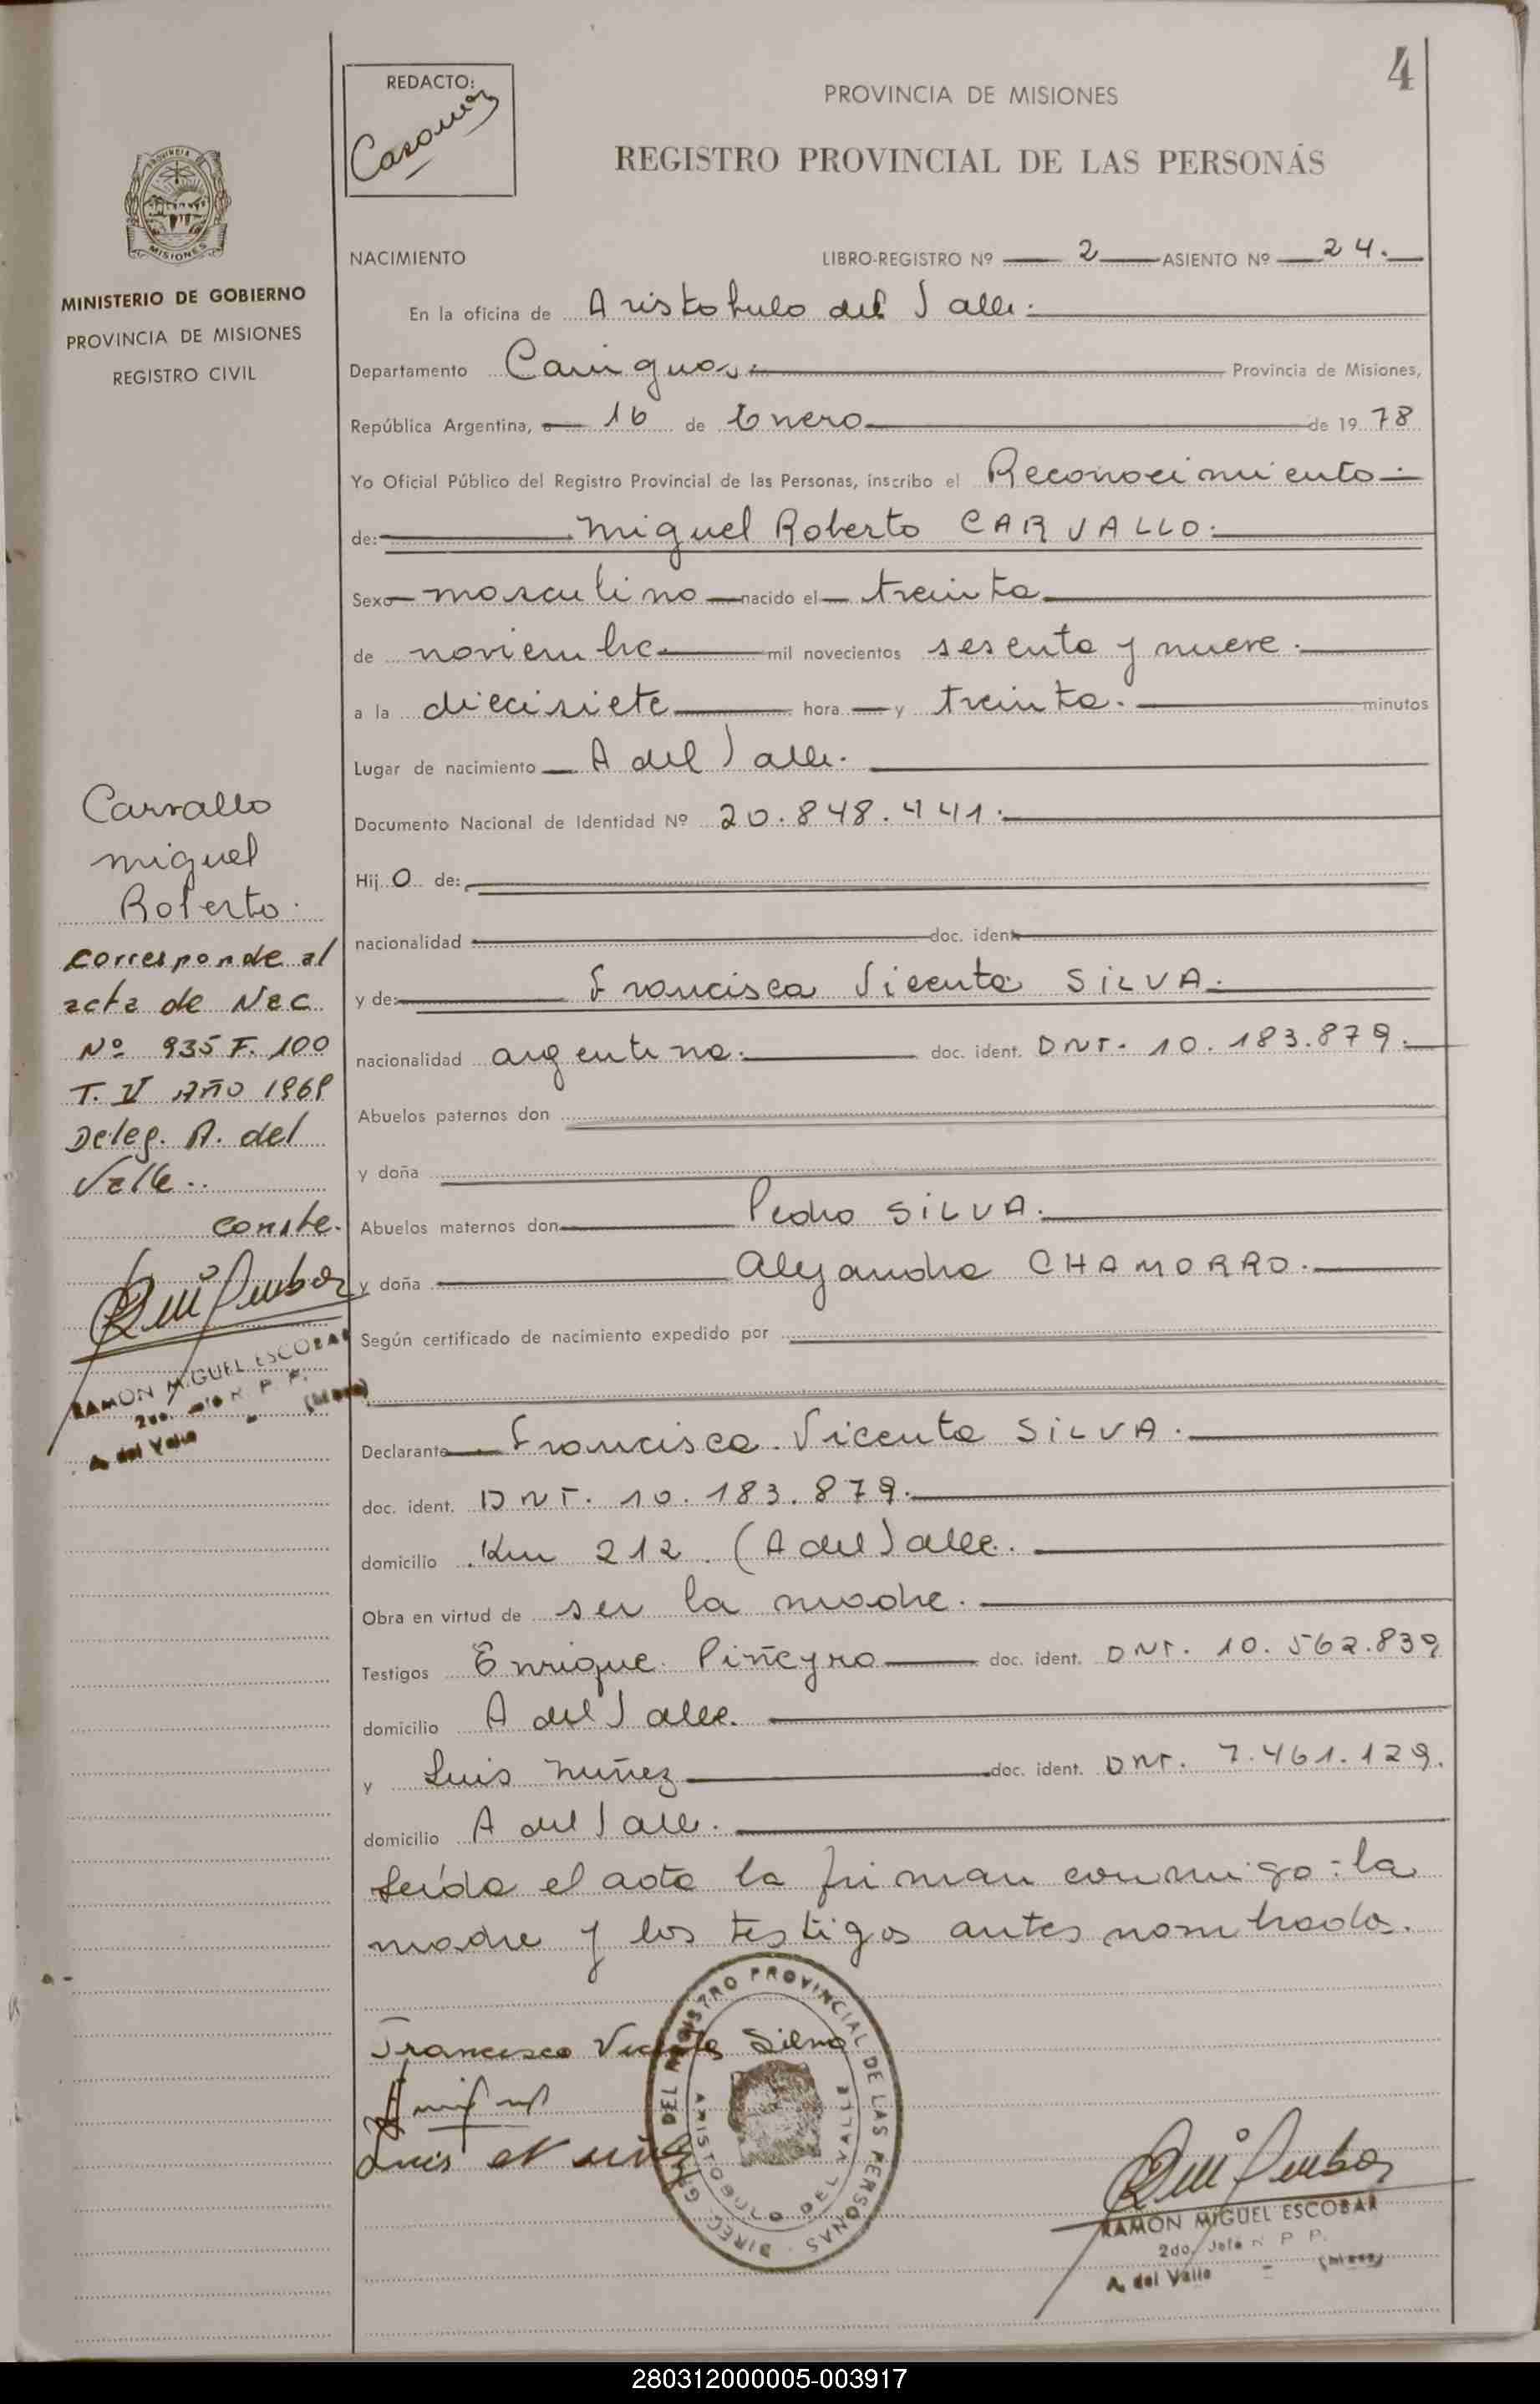 4
REDACTO:
PROVINCIA DE MISIONES
REGISTRO PROVINCIAL DE LAS PERSONAS
MISIONES
MINISTERIO DE GOBIERNO
PROVINCIA DE MISIONES
REGISTRO CIVIL
NACIMIENTO LIBRO-REGISTRO Nº 2 ASIENTO Nº 24.
En la oficina de Aristobulo del Valle.
Departamento Cainguas. Provincia de Misiones,
República Argentina, a 16 de Enero de 1978
Yo Oficial Público del Registro Provincial de las Personas, inscribo el Reconocimiento
de: Miguel Roberto CARVALLO.
Sexo masculino nacido el treinta
de noviembre mil novecientos sesenta y nueve.
a la diecisiete hora y treinta. minutos
Lugar de nacimiento A del Valle.
Documento Nacional de Identidad Nº 20.848.441.
Hijo de:
nacionalidad doc. ident.
y de: Francisca Vicenta SILVA.
nacionalidad argentina. doc. ident. DNI. 10.183.879.
Abuelos paternos don
y doña
Abuelos maternos don Pedro SILVA.
y doña Alejandra CHAMORRO.
Según certificado de nacimiento expedido por
Declarante Francisca Vicenta SILVA.
doc. ident. DNI. 10.183.879.
domicilio Km 212 (A del Valle.
Obra en virtud de ser la madre.
Testigos Enrique Piñeyro doc. ident. DNI. 10.562.839
domicilio A del Valle.
y Luis Nuñez doc. ident. DNI. 7.461.129.
domicilio A del Valle.
Leída el acta la firman conmigo: la
madre y los testigos antes nombrados.
Francisca Vicenta Silva
Luis Nuñez
DIREC. GRAL. DEL REGISTRO PROVINCIAL DE LAS PERSONAS
ARISTOBULO DEL VALLE
RAMON MIGUEL ESCOBAR
2do. Jefe R P P.
A. del Valle (Mnes)
Carvallo
Miguel
Roberto.
corresponde al
acta de Nac
Nº 935 F. 100
T. V Año 1969
Deleg. A. del
Valle..
conste.
RAMON MIGUEL ESCOBAR
2do. Jefe R P P.
A. del Valle (Mnes)
280312000005-003917